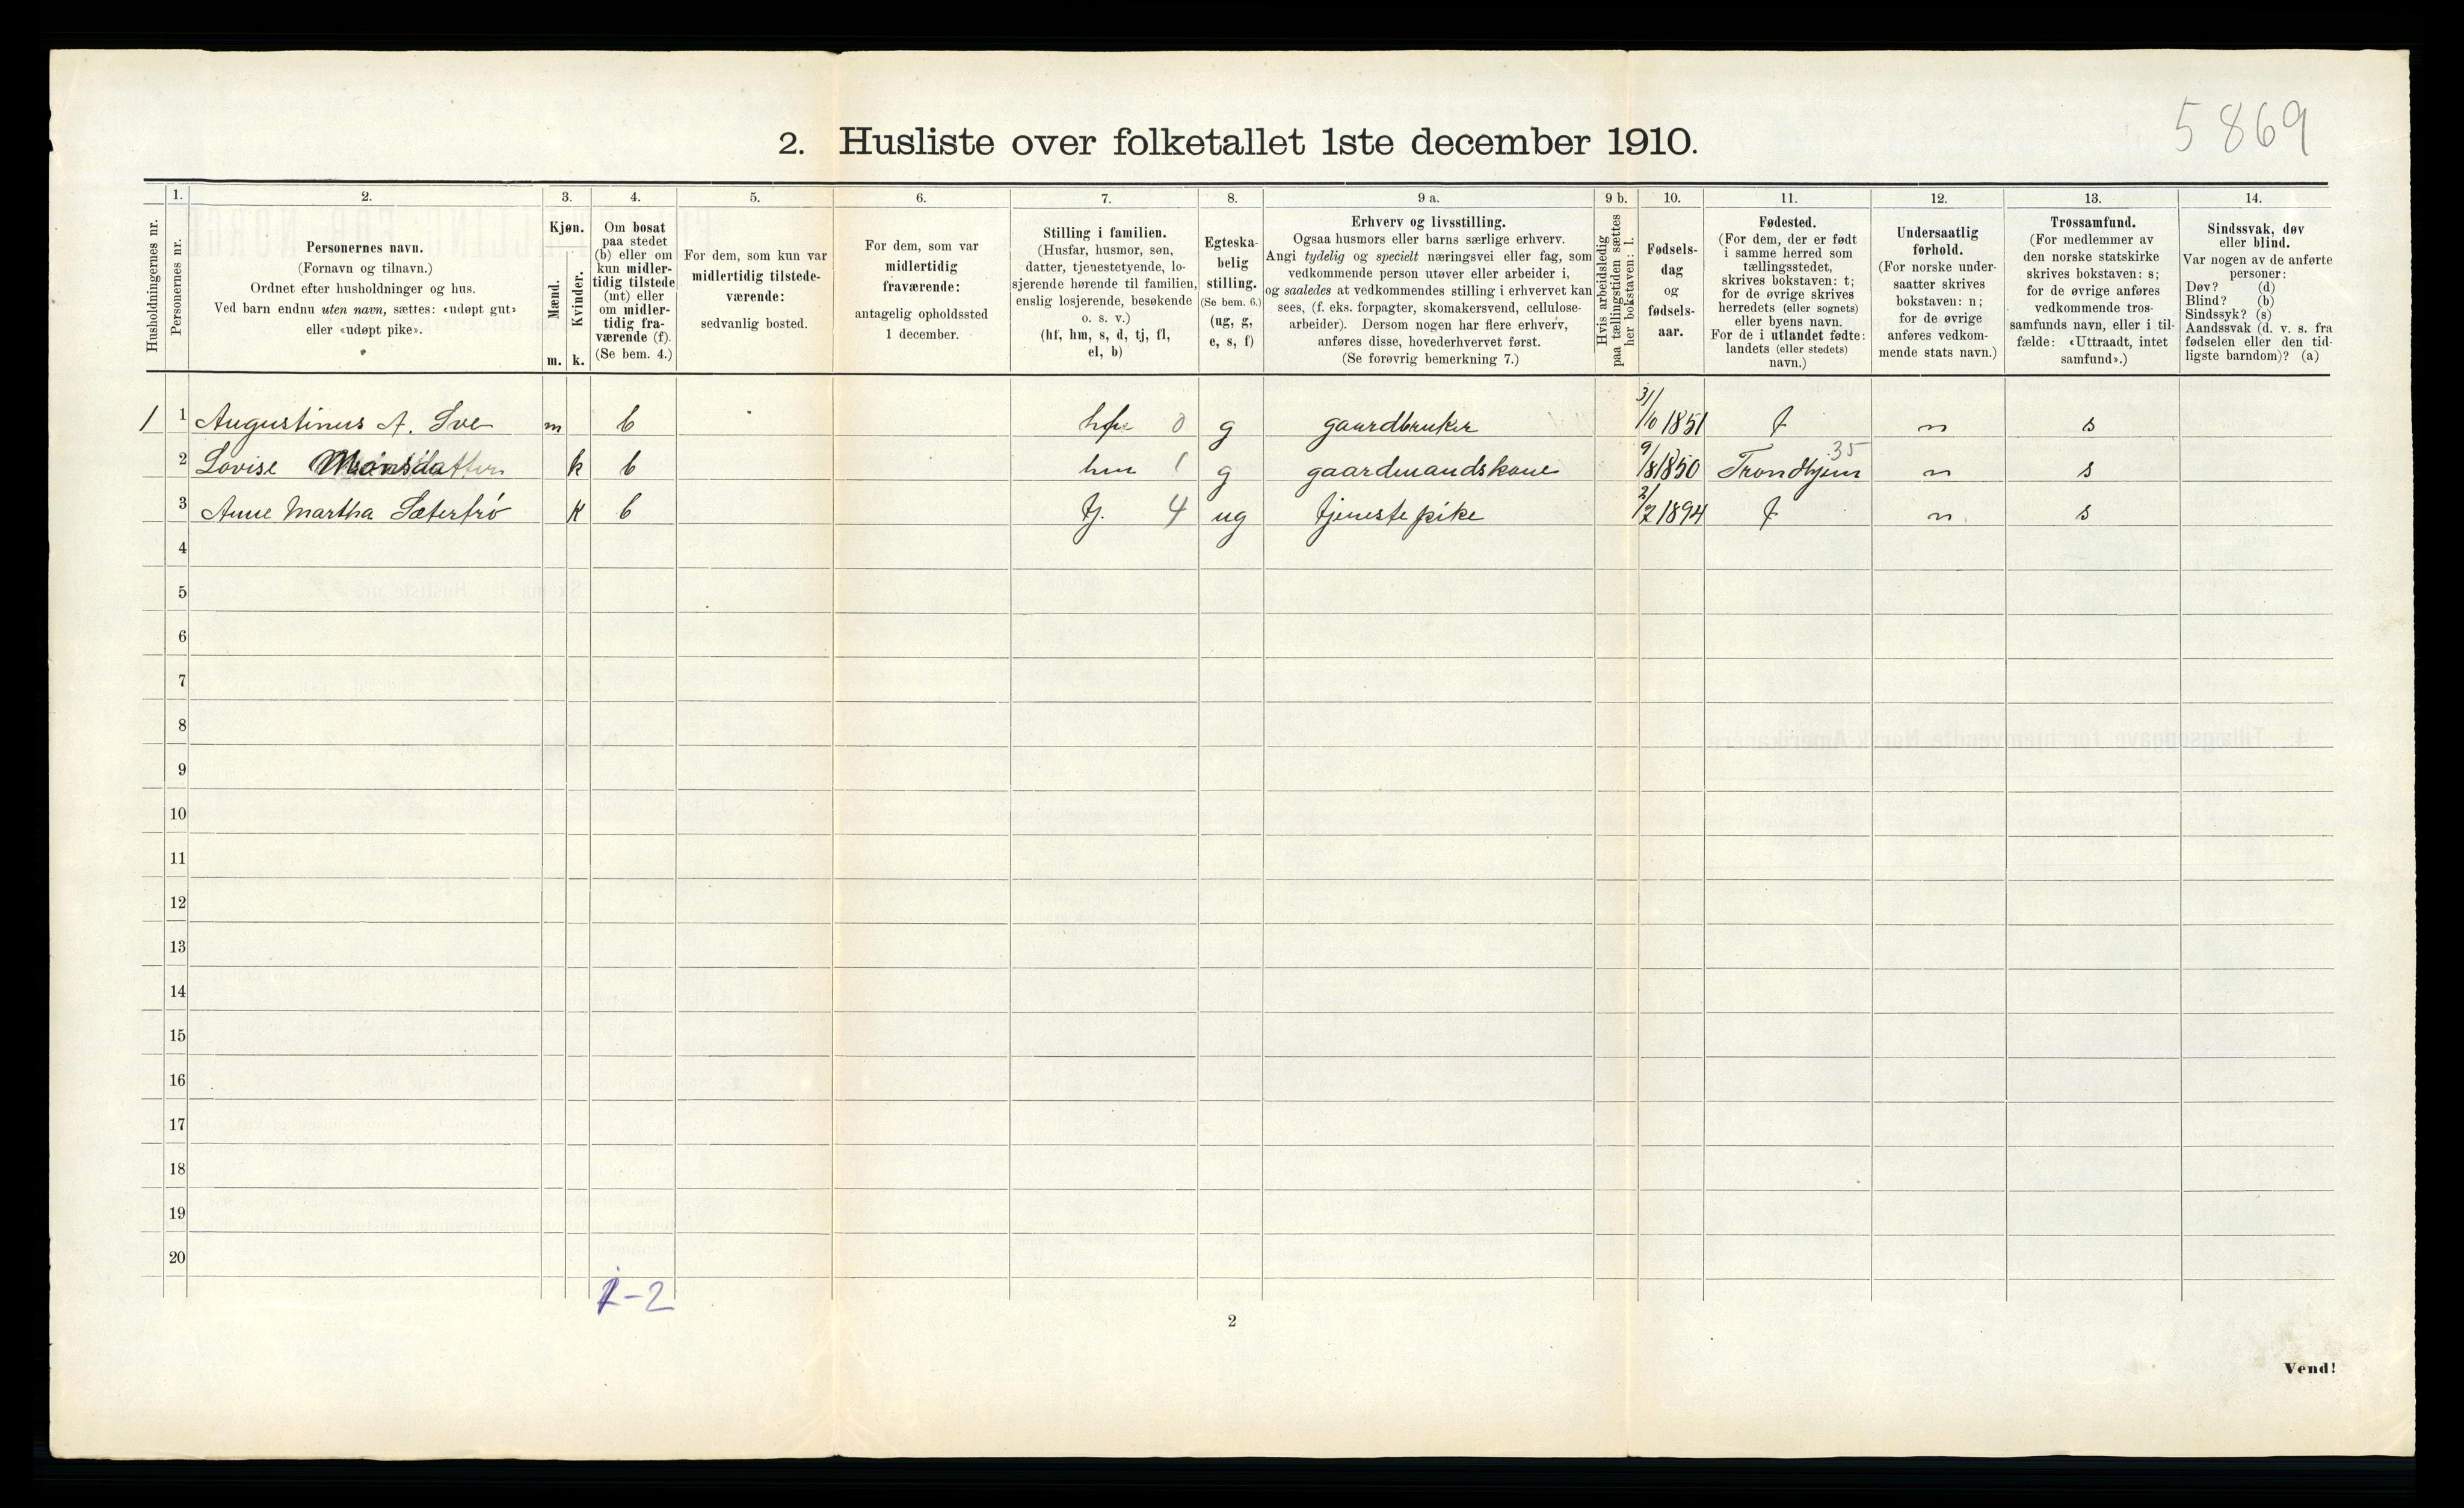 5869
2. Husliste over folketallet 1ste december 1910.
Husholdningernes nr.
1.
Personernes nr.
2.
Personernes navn.
(Fornavn og tilnavn.)
Ordnet efter husholdninger og hus.
Ved barn endnu uten navn, sættes: «udøpt gut»
eller «udøpt pike».
3.
Kjøn.
Mænd.
m.
Kvinder.
k.
4.
Om bosat
paa stedet
(b) eller om
kun midler-
tidig tilstede
(mt) eller
om midler-
tidig fra-
værende (f).
(Se bem. 4.)
5.
For dem, som kun var
midlertidig tilstede-
værende:
sedvanlig bosted.
6.
For dem, som var
midlertidig
fraværende:
antagelig opholdssted
1 december.
7.
Stilling i familien.
(Husfar, husmor, søn,
datter, tjenestetyende, lo-
sjerende hørende til familien,
enslig losjerende, besøkende
o. s. v.)
(hf, hm, s, d, tj, fl,
el, b)
8.
Egteska-
belig
stilling.
(Se bem. 6.)
(ug, g,
e, s, f)
9 a.
Erhverv og livsstilling.
Ogsaa husmors eller barns særlige erhverv.
Angi tydelig og specielt næringsvei eller fag, som
vedkommende person utøver eller arbeider i,
og saaledes at vedkommendes stilling i erhvervet kan
sees, (f. eks. forpagter, skomakersvend, cellulose-
arbeider). Dersom nogen har flere erhverv,
anføres disse, hovederhvervet først.
(Se forøvrig bemerkning 7.)
9 b.
Hvis arbeidsledig
paa tællingstiden sættes
her bokstaven: l.
10.
Fødsels-
dag
og
fødsels-
aar.
11.
Fødested.
(For dem, der er født
i samme herred som
tællingsstedet,
skrives bokstaven: t;
for de øvrige skrives
herredets (eller sognets)
eller byens navn.
For de i utlandet fødte:
landets (eller stedets)
navn.)
12.
Undersaatlig
forhold.
(For norske under-
saatter skrives
bokstaven: n;
for de øvrige
anføres vedkom-
mende stats navn.)
13.
Trossamfund.
(For medlemmer av
den norske statskirke
skrives bokstaven: s;
for de øvrige anføres
vedkommende tros-
samfunds navn, eller i til-
fælde: «Uttraadt, intet
samfund».)
14.
Sindssvak, døv
eller blind.
Var nogen av de anførte
personer:
Døv? (d)
Blind? (b)
Sindssyk? (s)
Aandssvak (d. v. s. fra
fødselen eller den tid-
ligste barndom)? (a)
1 1 Augustinus A. m b 0 g gaardbruker 31/10 1851 t n s
2 Lovise Monsdatter k b hm 1 g gaardmandskone 9/8 1850 Trondhjem 35 n s
3 Anne Martha K b tj. 4 ug tjenestepike 2/2 1894 t n s
4
5
6
7
8
9
10
11
12
13
14
15
16
17
18
19
20
1-2
2
Vend!